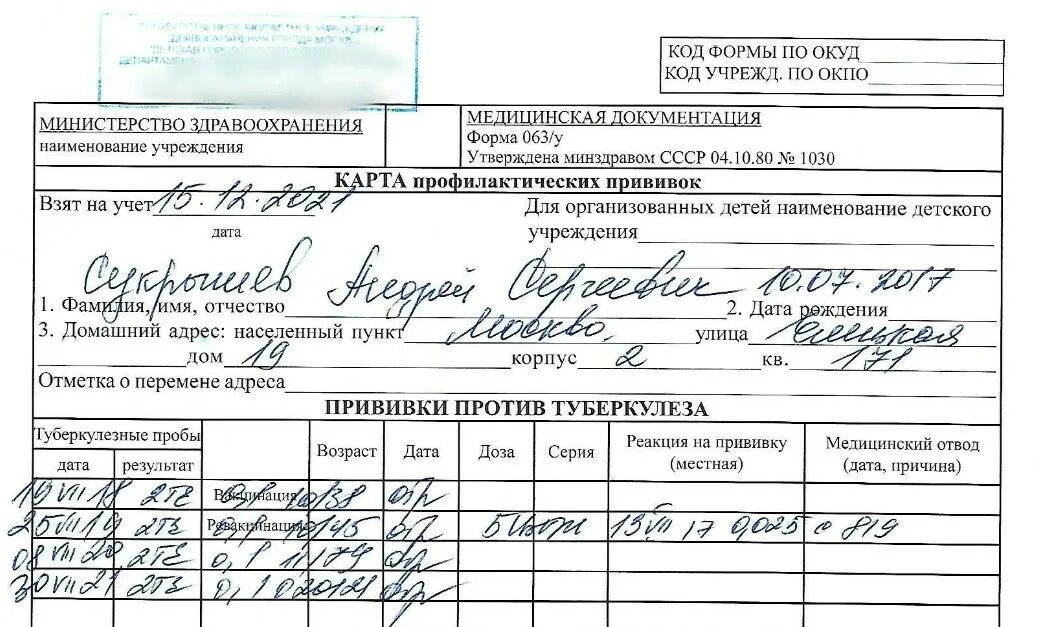 ГОРОДА МОСКВЫ
КОД ФОРМЫ ПО ОКУД
КОД УЧРЕЖД. ПО ОКПО
МИНИСТЕРСТВО ЗДРАВООХРАНЕНИЯ
наименование учреждения
МЕДИЦИНСКАЯ ДОКУМЕНТАЦИЯ
Форма 063/у
Утверждена минздравом СССР 04.10.80 № 1030
КАРТА профилактических прививок
Взят на учет 15.12.2021
дата
Для организованных детей наименование детского
учреждения
Сукрышев Андрей Сергеевич 10.07.2017
1. Фамилия, имя, отчество 2. Дата рождения
3. Домашний адрес: населенный пункт Москва, улица
дом 19 корпус 2 кв. 171
Отметка о перемене адреса
ПРИВИВКИ ПРОТИВ ТУБЕРКУЛЕЗА
Туберкулезные пробы
дата результат Возраст Дата Доза Серия Реакция на прививку (местная) Медицинский отвод (дата, причина)
19 VII 18 2ТЕ Вакцинация отр
25 VII 19 2ТЕ Ревакцинация отр 13 VII 17 0,025 с 819
08 VII 20 2ТЕ 0,1 отр
30 VII 21 2ТЕ 0,1 отр